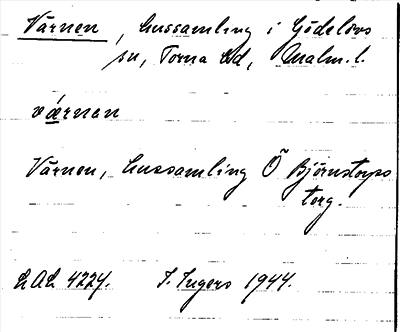 Värnen, hussamling i Gödelövs
sn, Torna hd, Malm. l.
værnen
Värnen, hussamling Ö Björnstorps
torg.
LAL 4224. I. Ingers 1944.